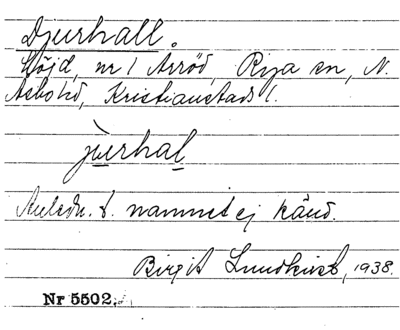 Djurhall.
Höjd, nr 1 Arröd, Riseberga sn, N.
Åsbo hd, Kristianstads l.
ju̱rhal̲
Anledn. t. namnet ej känd.
Birgit Lundkvist, 1938.
Nr 5502.